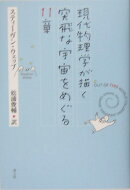 現代物理学が描く
突飛な宇宙をめぐる
11章
スティーヴン・ウェッブ
松浦俊輔・訳
青土社